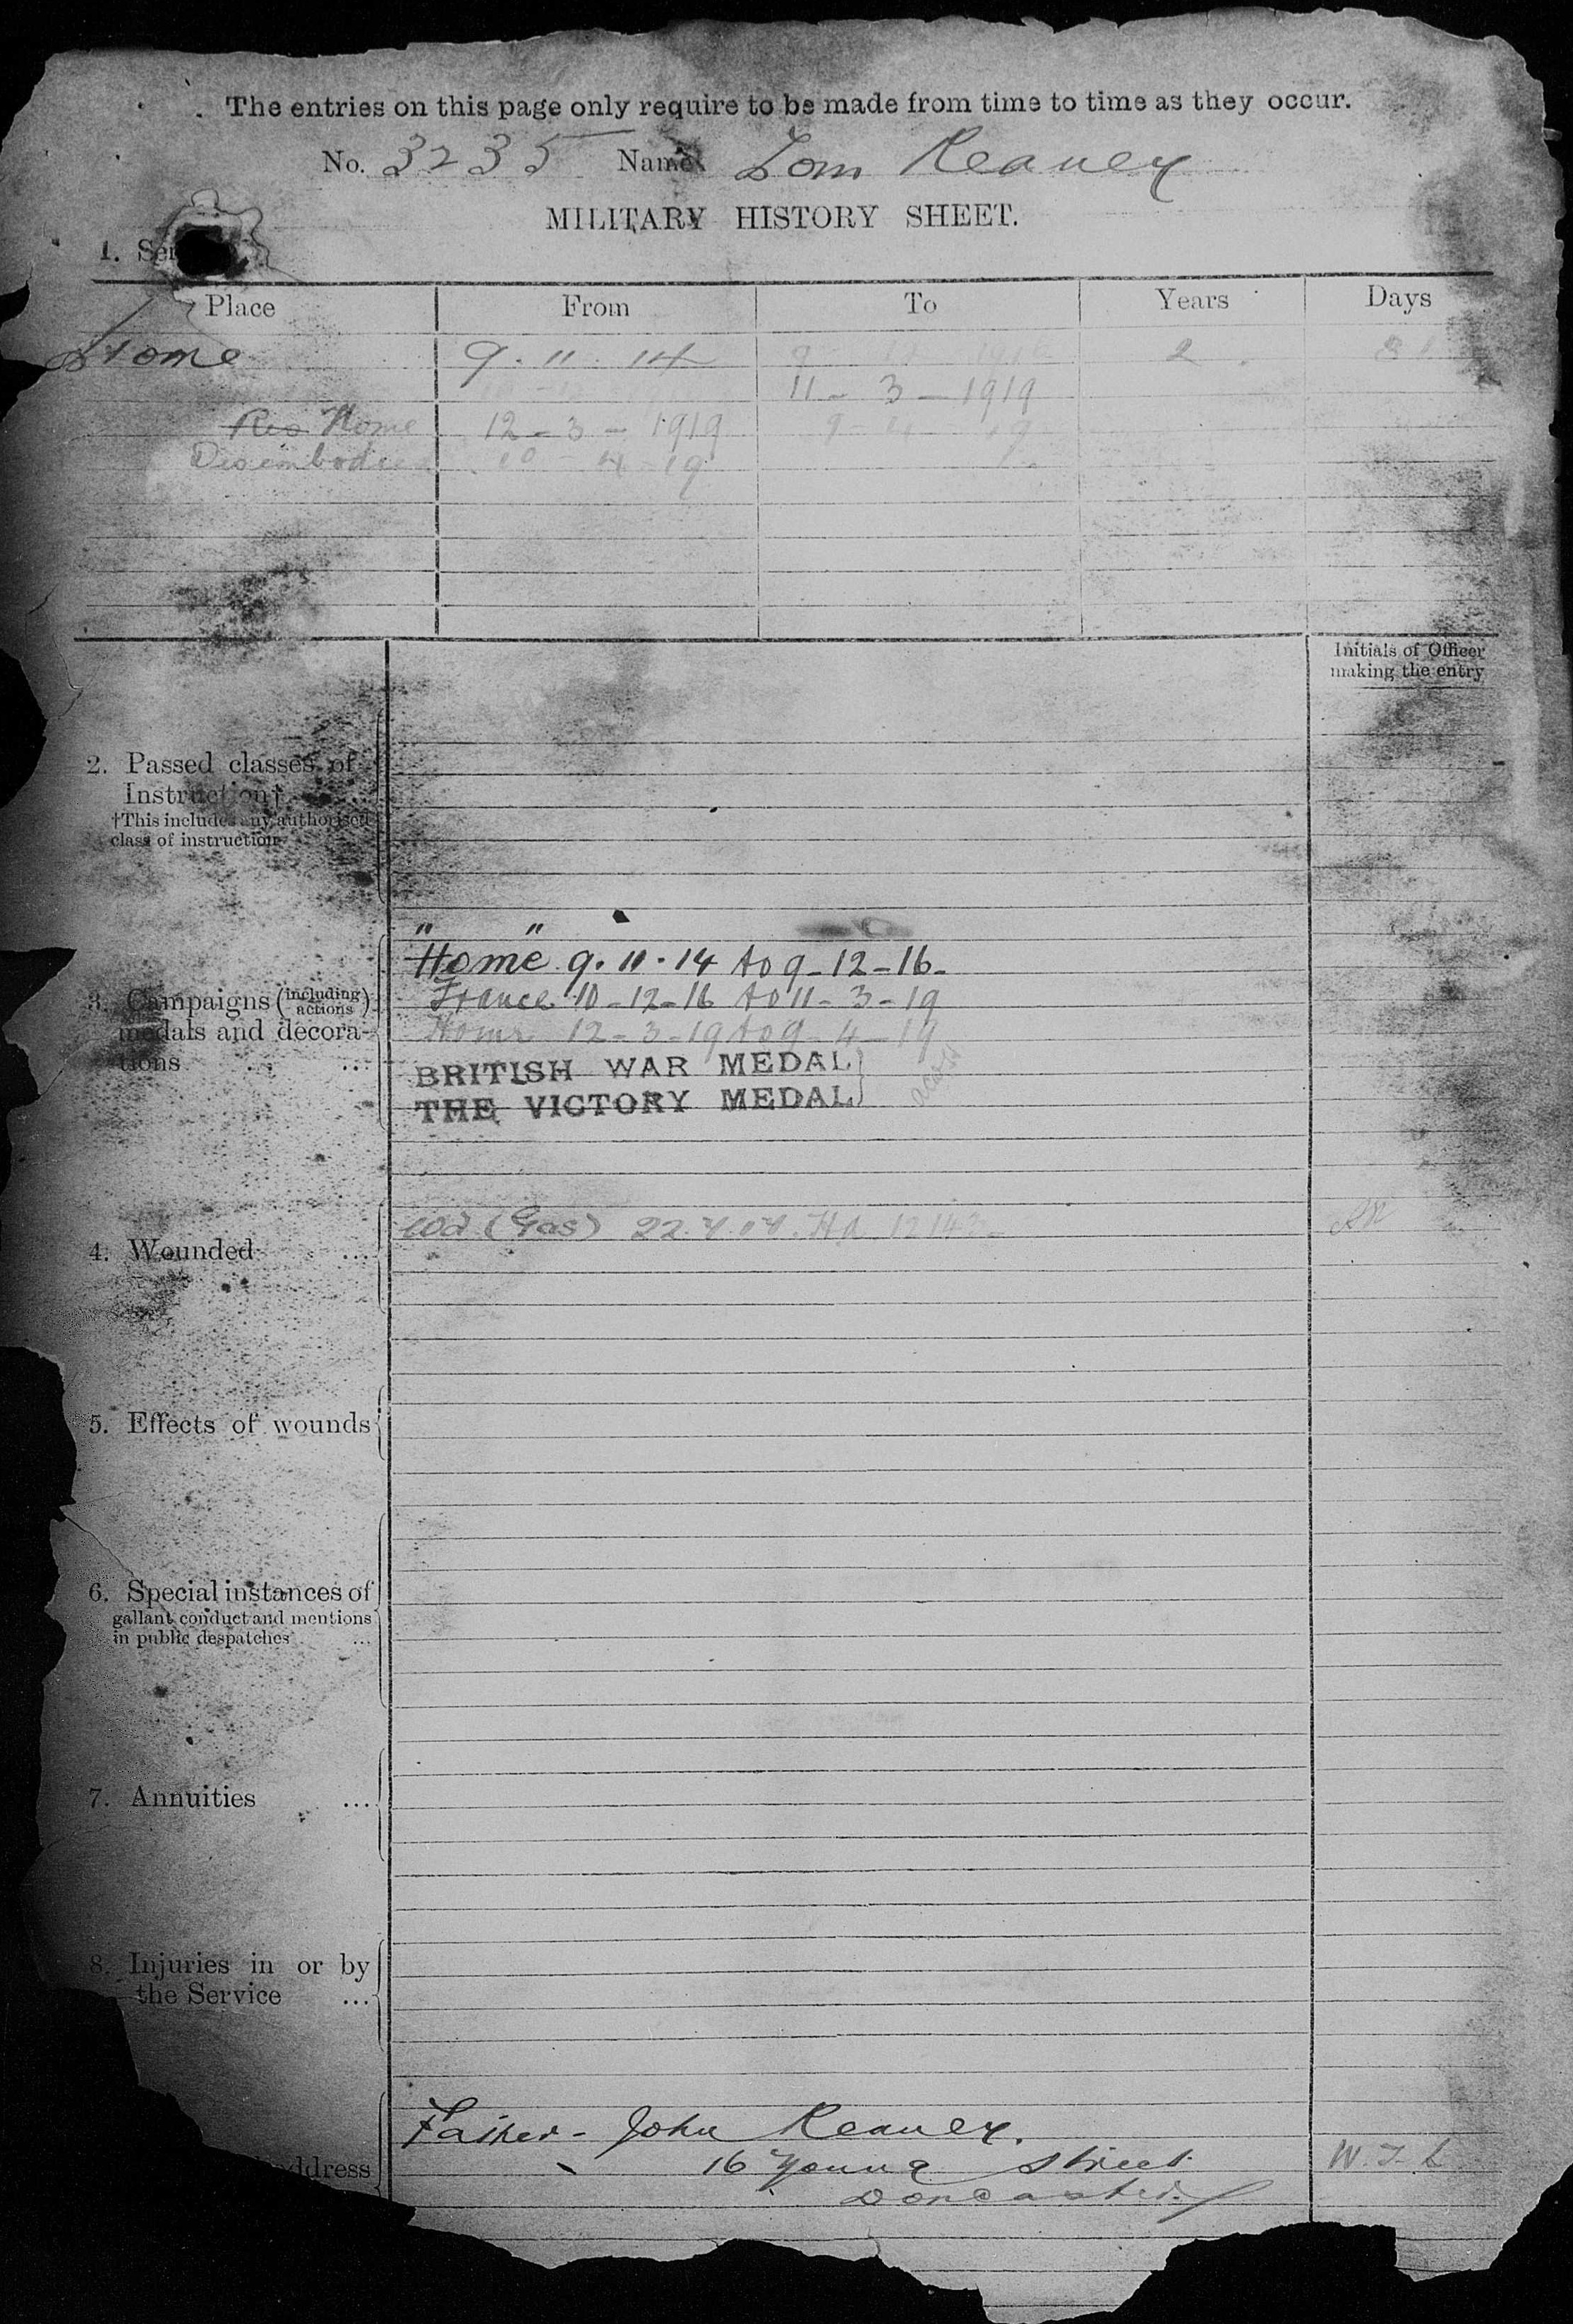 The entries on this page only require to be made from time to time as they occur.
No. 3235 Name Tom Reaney
MILITARY HISTORY SHEET.
1. Ser
Place From To Years Days
Home 9.11.14 9 12 1916 2
11-3-1919
Res Home 12-3-1919 9-4-19
Disembodied 10-4-19
Initials of Officer
making the entry
2. Passed classes of
Instruction†
†This includes any authorised
class of instruction
"Home" 9.11.14 to 9-12-16-
3. Campaigns (including actions) France 10-12-16 to 11-3-19
medals and decora- Home 12-3-19 to 9-4-19
tions ... BRITISH WAR MEDAL
THE VICTORY MEDAL
4. Wounded ... Wd (Gas) 22.7.17.
5. Effects of wounds
6. Special instances of
gallant conduct and mentions
in public despatches ...
7. Annuities ...
8. Injuries in or by
the Service ...
Father - John Reaney.
ddress 16 Young Street W.J.L
Doncaster.